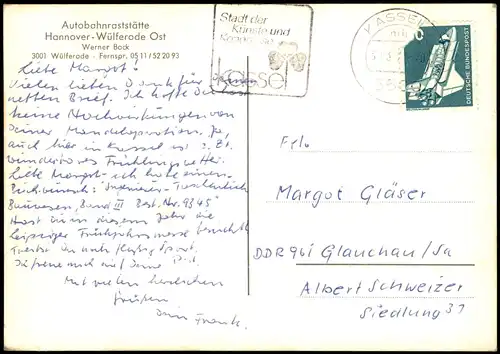 Autobahnraststätte
Hannover-Wülferode Ost
Werner Bock
3001 Wülferode - Fernspr. 05 11/52 20 93
Stadt der
Künste und
Kassel
KASSEL
DEUTSCHE BUNDESPOST
Liebe Margot!
Vielen lieben Dank für Deinen
netten Brief. Ich hoffe Du hast
keine Nachwirkungen von
Deiner Mandeloperation. Ja,
auch hier in Kassel ist z. Zt.
wundervolles Frühlingswetter.
Liebe Margot - ich habe einen
Buchwunsch: "Ingenieur-Taschenbuch
Bauwesen, Band II Best. Nr. 9345"
Hast Du in diesem Jahr die
Leipziger Frühjahrsmesse besucht?
Treibe Du auch fleißig Sport.
Ich freue mich auf Deine Post
Mit vielen herzlichen
Grüßen
Dein Frank.
Frln.
Margot Gläser
DDR 961 Glauchau/Sa
Albert Schweizer
Siedlung 31